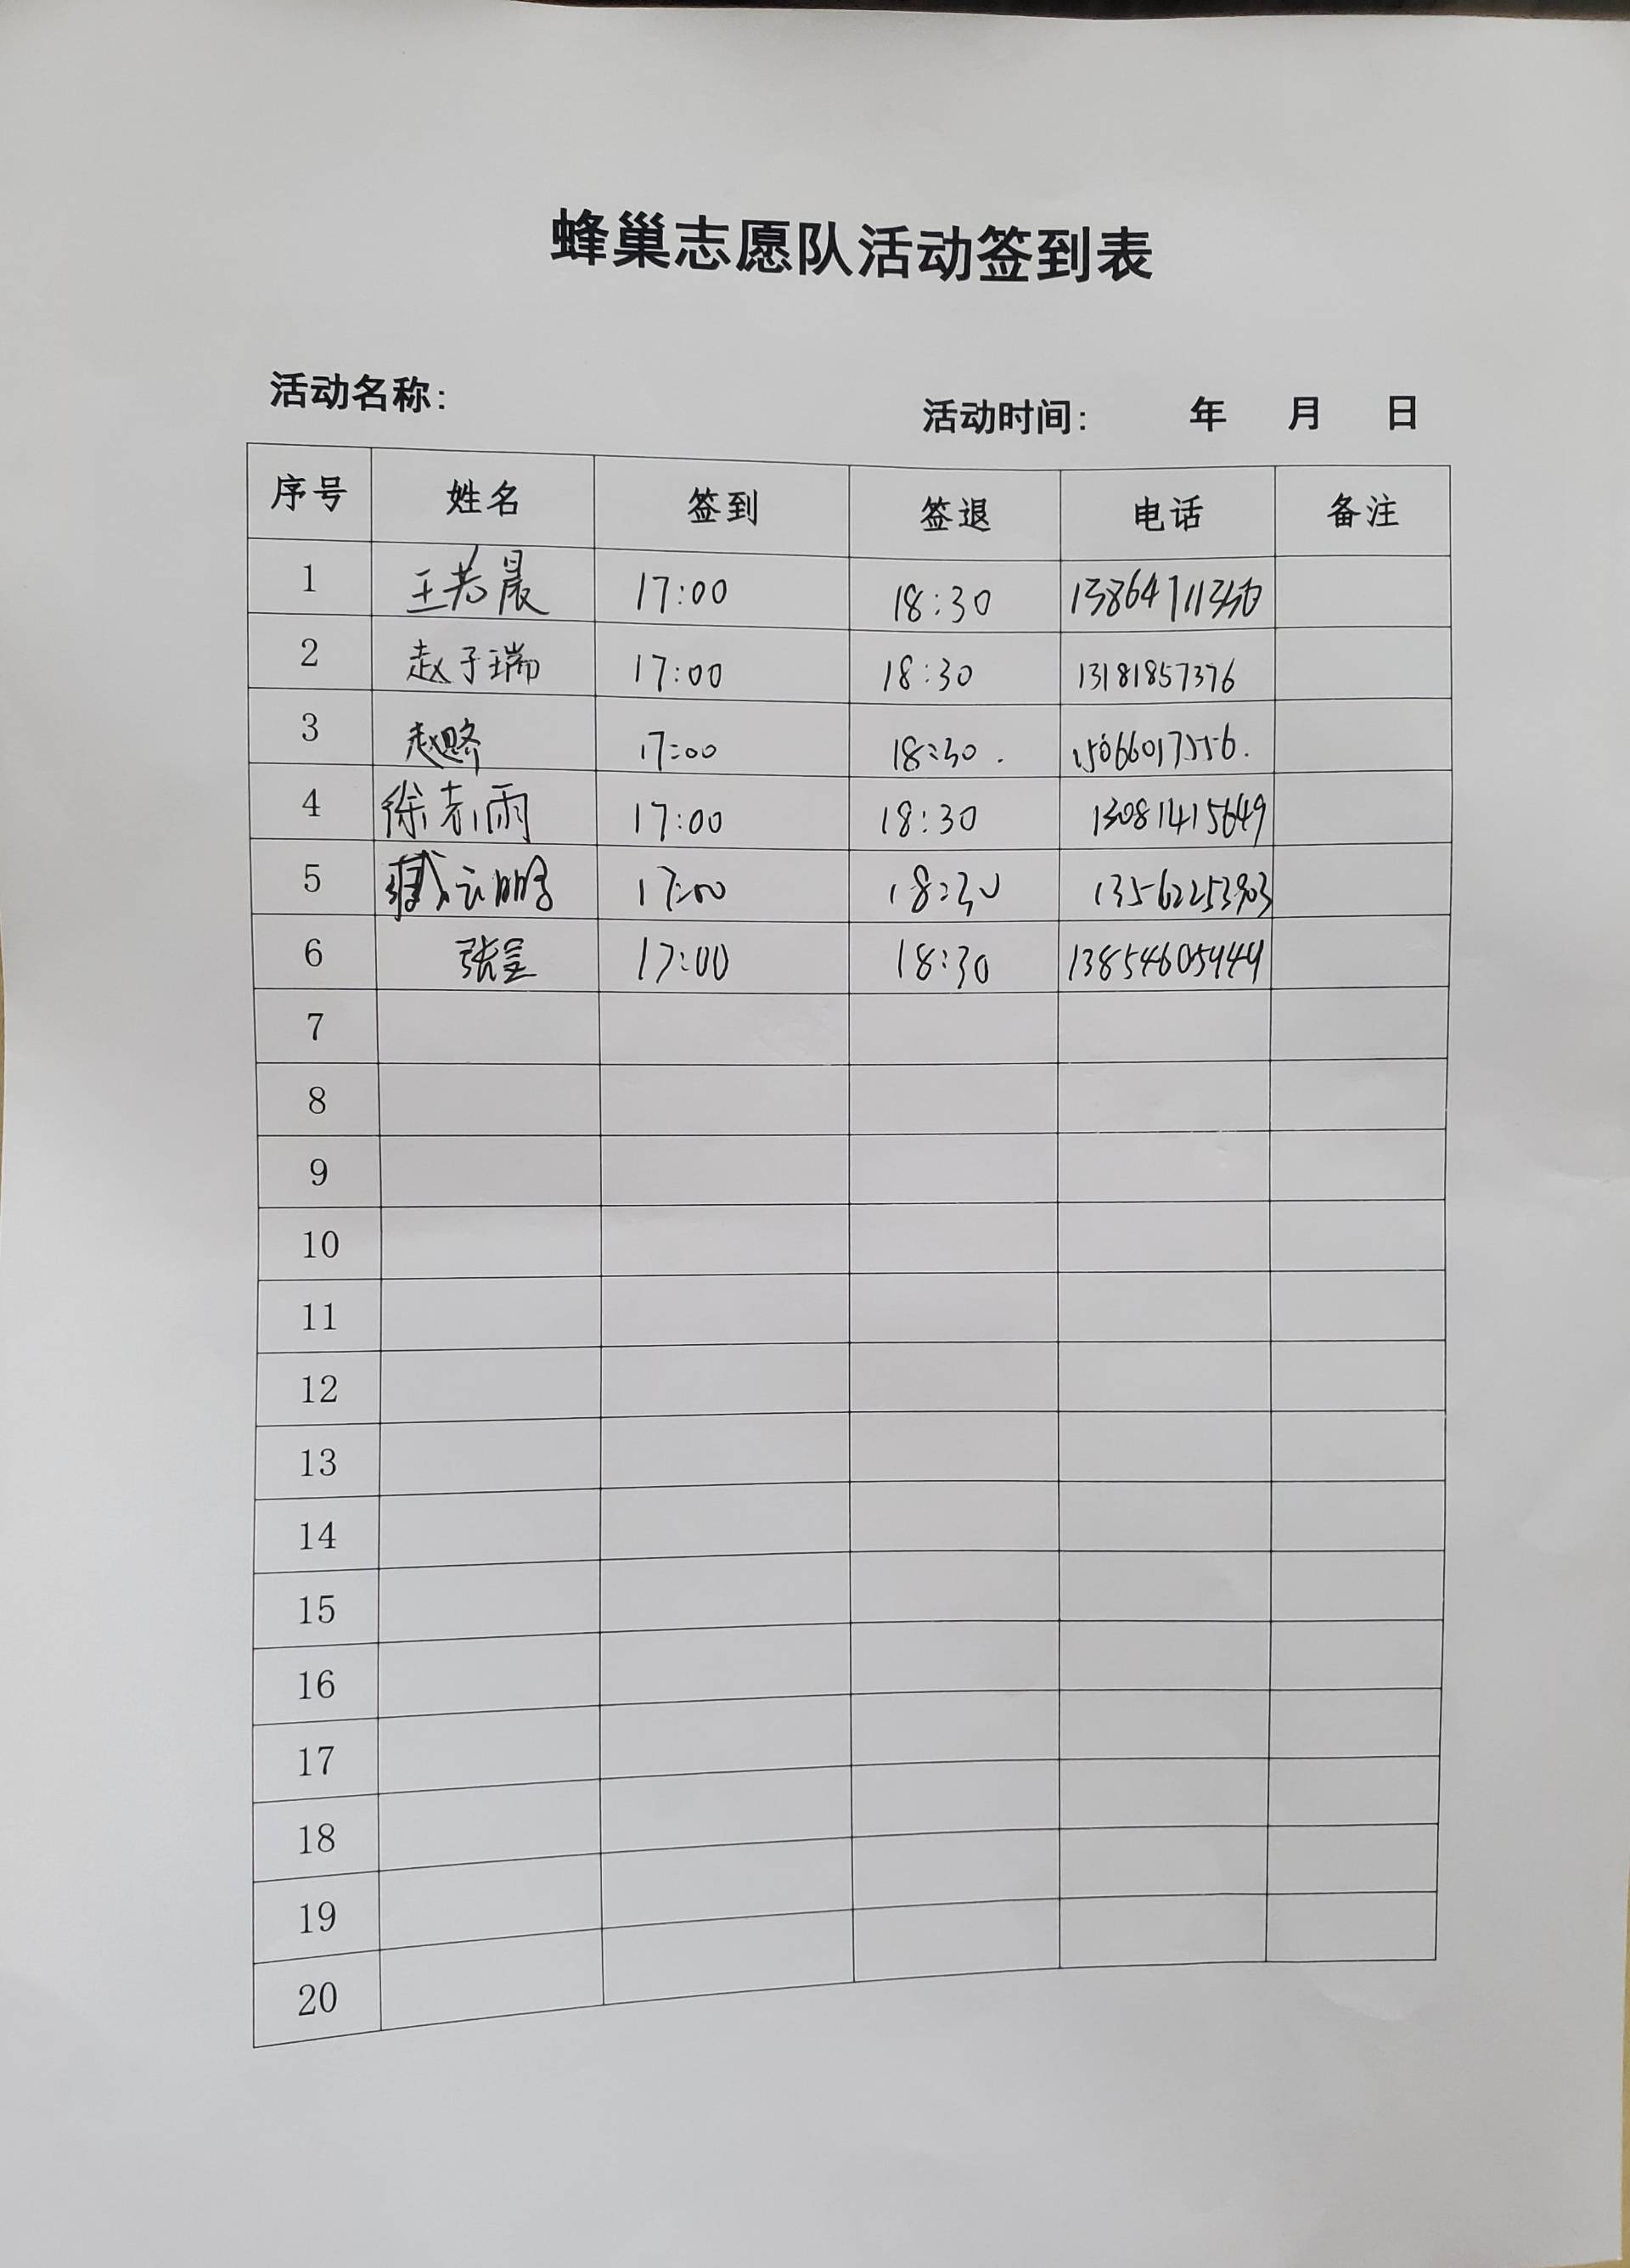 蜂巢志愿队活动签到表
活动名称:
活动时间: 年 月 日
序号 姓名 签到 签退 电话 备注
1 王若晨 17:00 18:30
2 赵子瑞 17:00 18:30 13181857376
3 17:00 18:30. 15066017556.
4 17:00 18:30 13081415649
5 臧云鹏 17:00 18:30 13562253903
6 17:00 18:30 13854605949
7
8
9
10
11
12
13
14
15
16
17
18
19
20